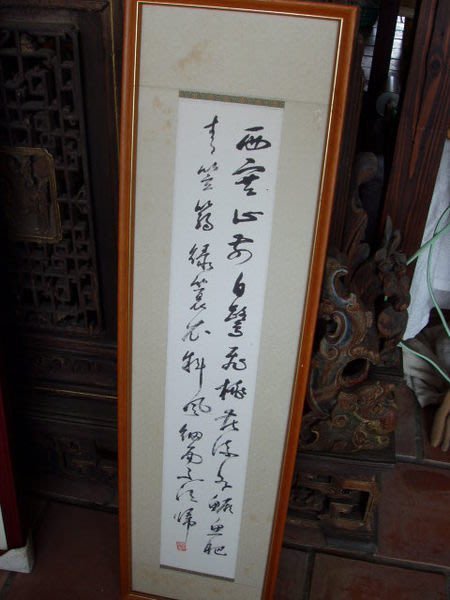 西塞山前白鷺飛桃花流水鱖魚肥
青笠篛綠簑衣斜風細雨不須歸